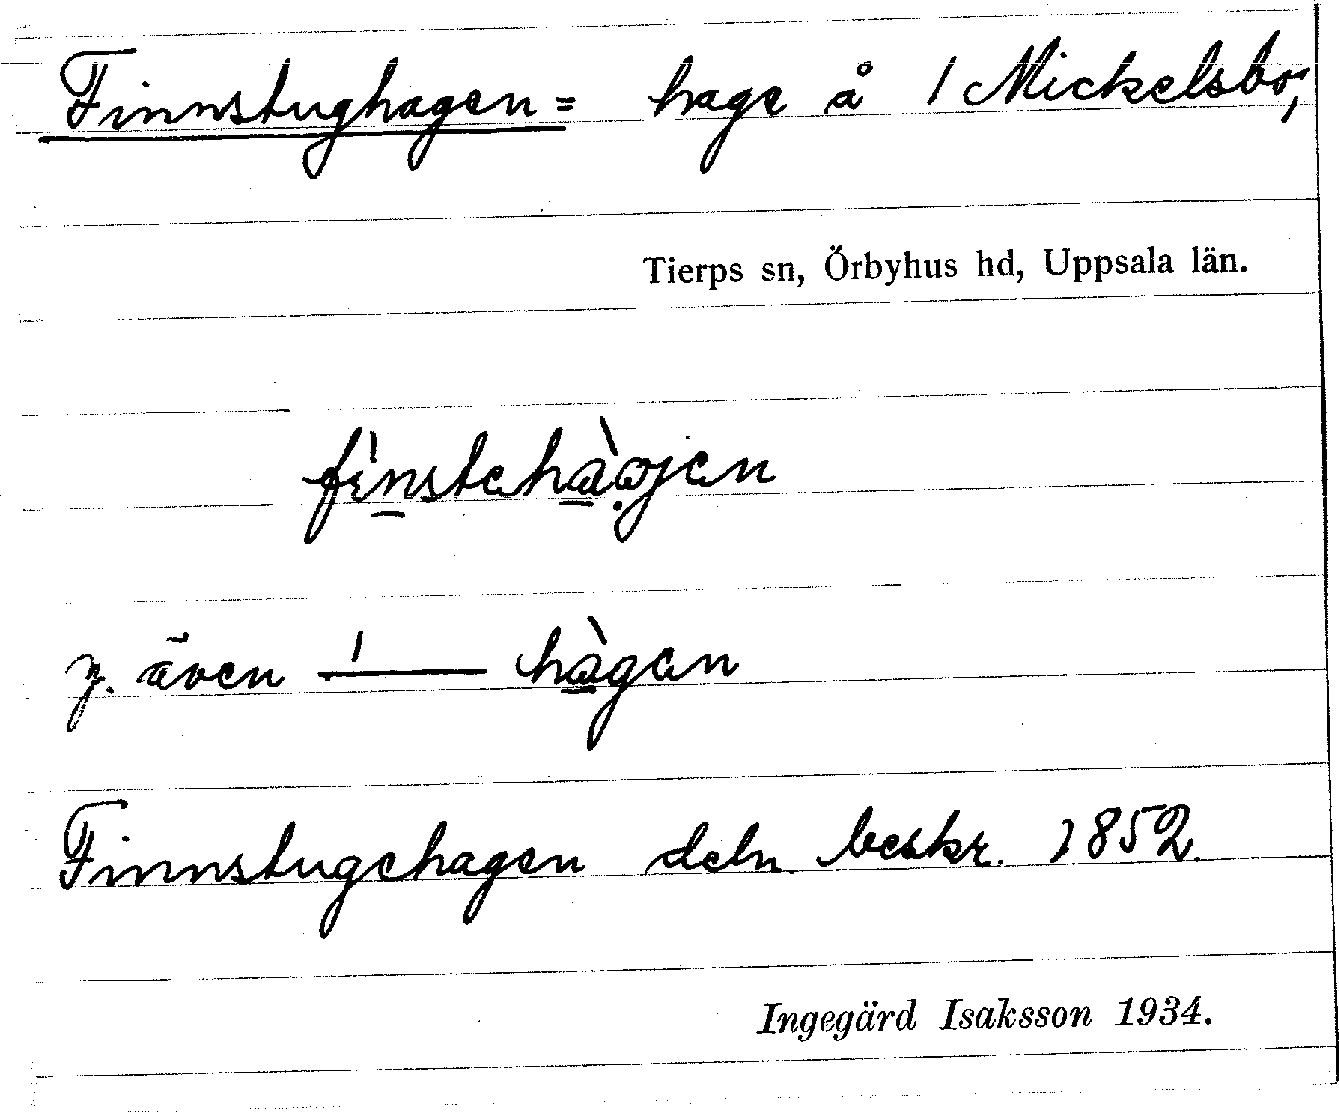 Finnstughagen = hage å 1 Mickelsbo;
Tierps sn, Örbyhus hd, Uppsala län.
fìnstehàgjen
y. även —— hàgen
Finnstugehagen deln. beskr. 1852.
Ingegärd Isaksson 1934.